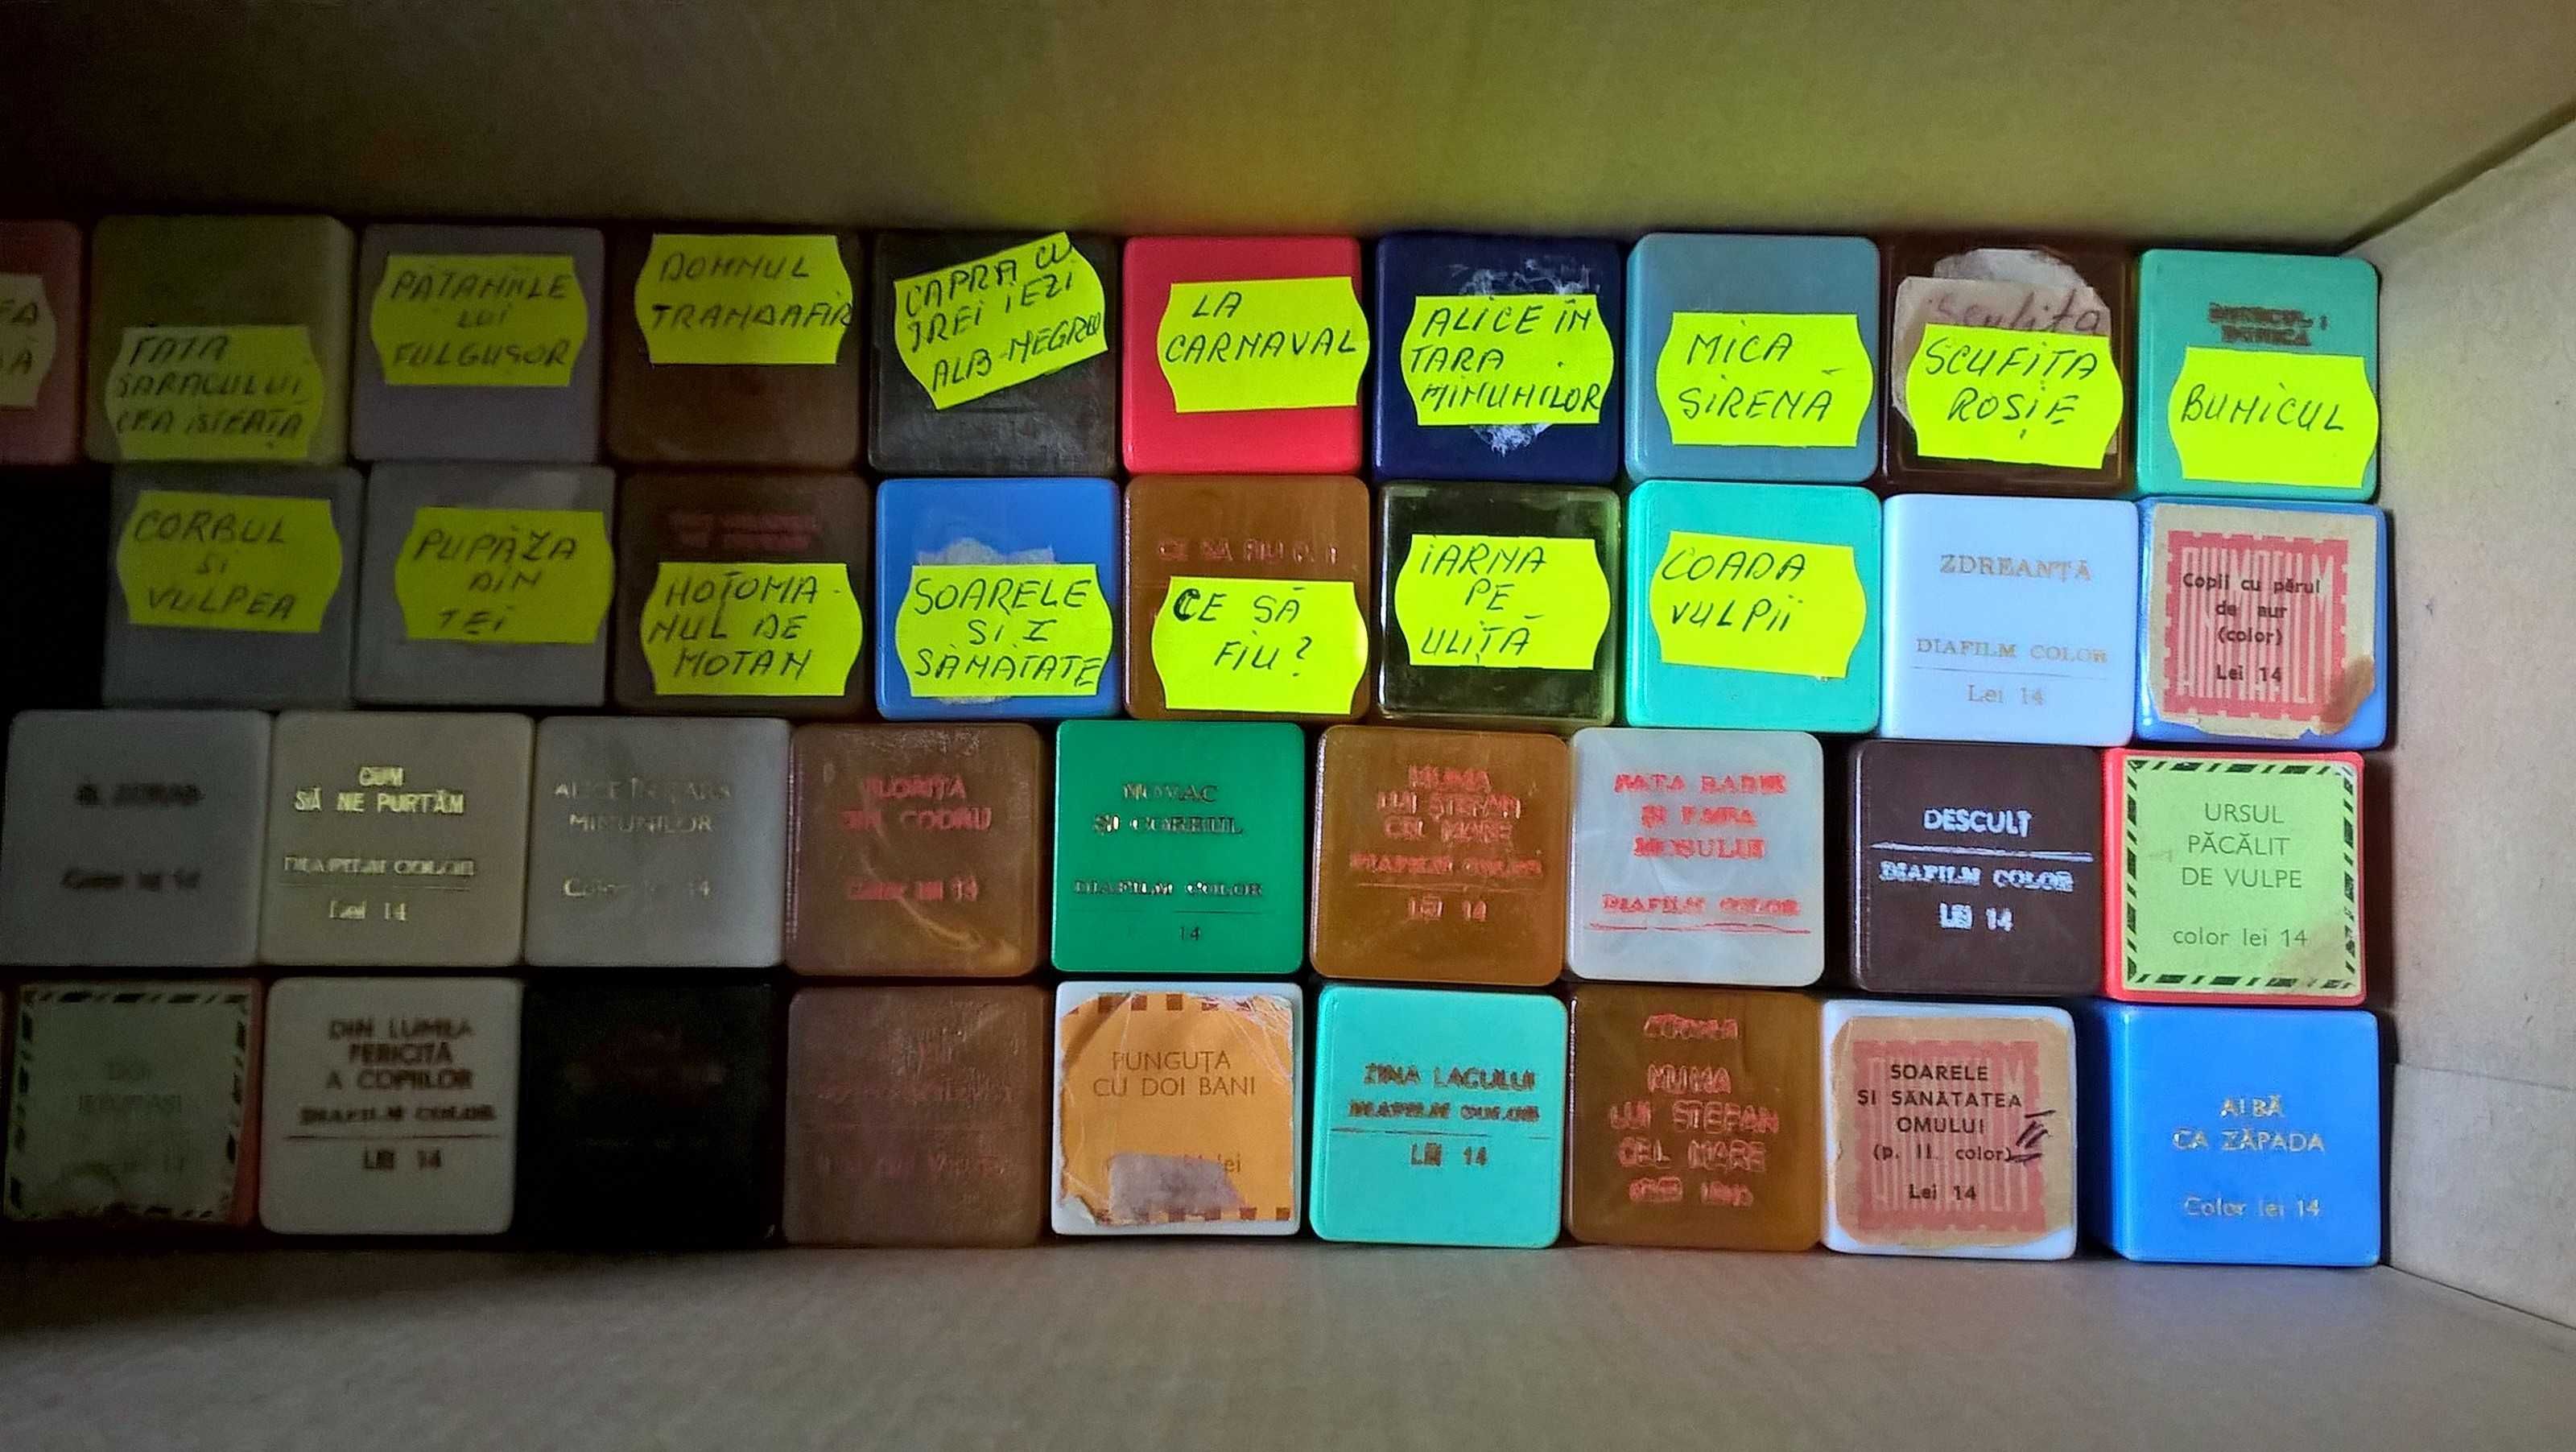 FATA
SARACULUI
CEA ISTEAȚĂ
PĂȚANIILE
LUI
FULGUȘOR
DOMNUL
TRANDAFIR
CAPRA CU
TREI IEZI
ALB-NEGRU
LA
CARNAVAL
ALICE ÎN
TARA
MINUNILOR
MICA
SIRENĂ
Scufița
SCUFITA
ROȘIE
BUNICUL
CORBUL
SI
VULPEA
PUPĂZA
DIN
TEI
HOȚOMA-
NUL DE
MOTAN
SOARELE
SI I
SĂNĂTATE
CE SĂ FIU
CE SĂ
FIU?
IARNA
PE
ULIȚĂ
COADA
VULPII
ZDREANȚĂ
DIAFILM COLOR
Lei 14
ANIMAFILM
Copii cu părul
de aur
(color)
Lei 14
Color lei 14
CUM
SĂ NE PURTĂM
DIAFILM COLOR
Lei 14
ALICE ÎN ȚARA
MINUNILOR
Color lei 14
FLORIȚA
DIN CODRU
Color lei 14
NOVAC
ȘI CORBUL
DIAFILM COLOR
14
MUMA
LUI ȘTEFAN
CEL MARE
DIAFILM COLOR
LEI 14
FATA BABEI
ȘI FATA
MOȘULUI
DIAFILM COLOR
DESCULȚ
DIAFILM COLOR
LEI 14
URSUL
PĂCĂLIT
DE VULPE
color lei 14
DOI
DIN LUMEA
FERICITĂ
A COPIILOR
DIAFILM COLOR
LEI 14
PUNGUȚA
CU DOI BANI
lei
ZÎNA LACULUI
DIAFILM COLOR
LEI 14
MUMA
LUI ȘTEFAN
CEL MARE
SOARELE
ȘI SĂNĂTATEA
OMULUI
(p. II. color)
Lei 14
ALBĂ
CA ZĂPADA
Color lei 14